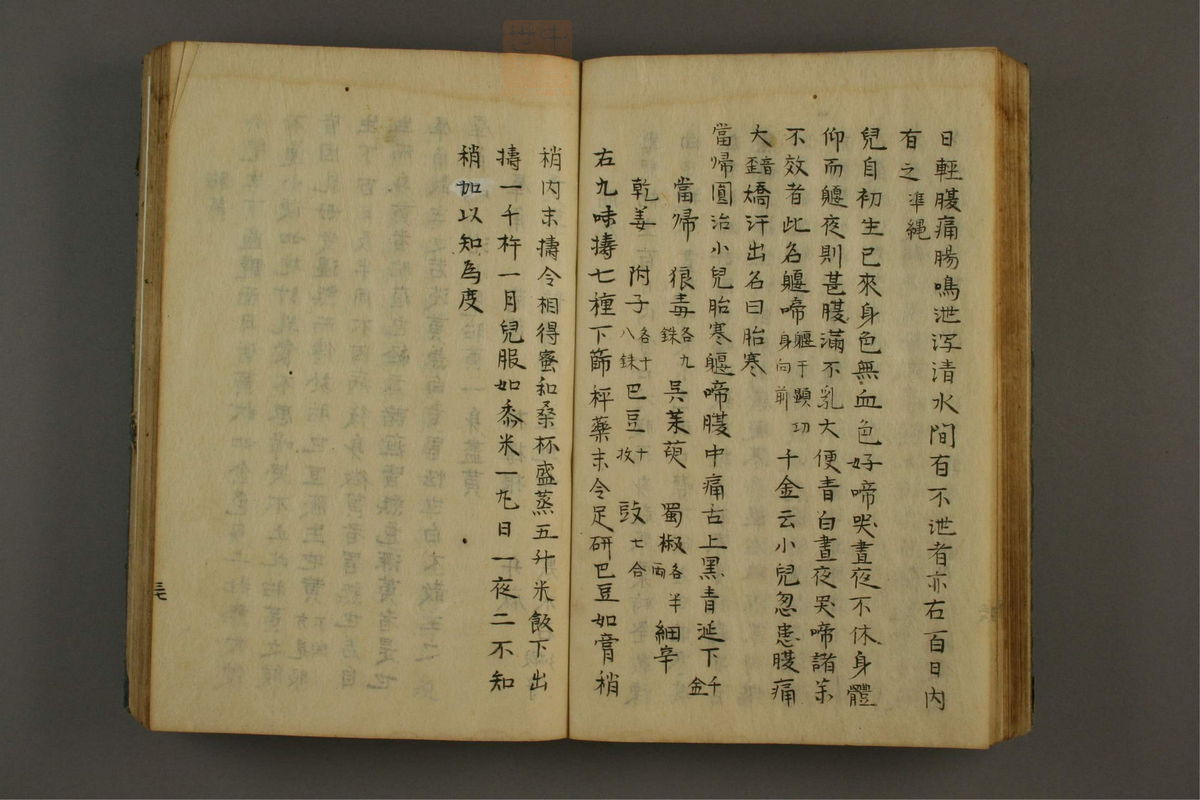 日輕腹痛腸鳴泄泻清水間有不泄者亦右百日内
有之準繩
兒自初生已來身色無血色好啼哭晝夜不休身體
仰而軀夜則甚腹滿不乳大便青白晝夜哭啼諸薬
不效者此名軀啼軀于顕功身向前千金云小兒忽患腹痛
大矯汗出名曰胎寒
當帰圓治小兒胎寒軀啼腹中痛古上黒青延下千金
當帰 狼毒各九銖 呉茱萸 蜀椒各半両 細辛
乾姜 附子各十八銖 巴豆十枚 豉七合
右九味擣七種下篩秤藥末令足研巴豆如膏稍
稍内末擣令相得蜜和桑杯盛蒸五升米飯下出
擣一千杵一月兒服如黍米一丸日一夜二不知
稍加以知為度